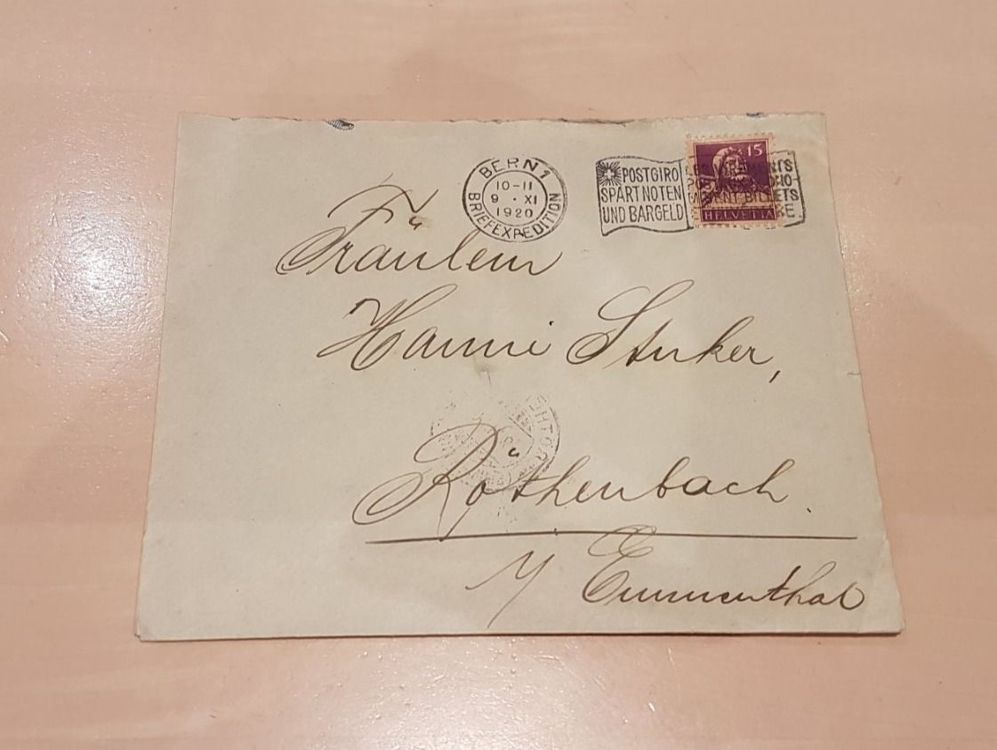 BERN 1
10-11
9 · XI
1920
BRIEFEXPEDITION
POSTGIRO
SPART NOTEN
UND BARGELD
BILLETS
15
HELVETIA
Fräulein
Hanni Stuker,
Röthenbach.
i/ Emmenthal